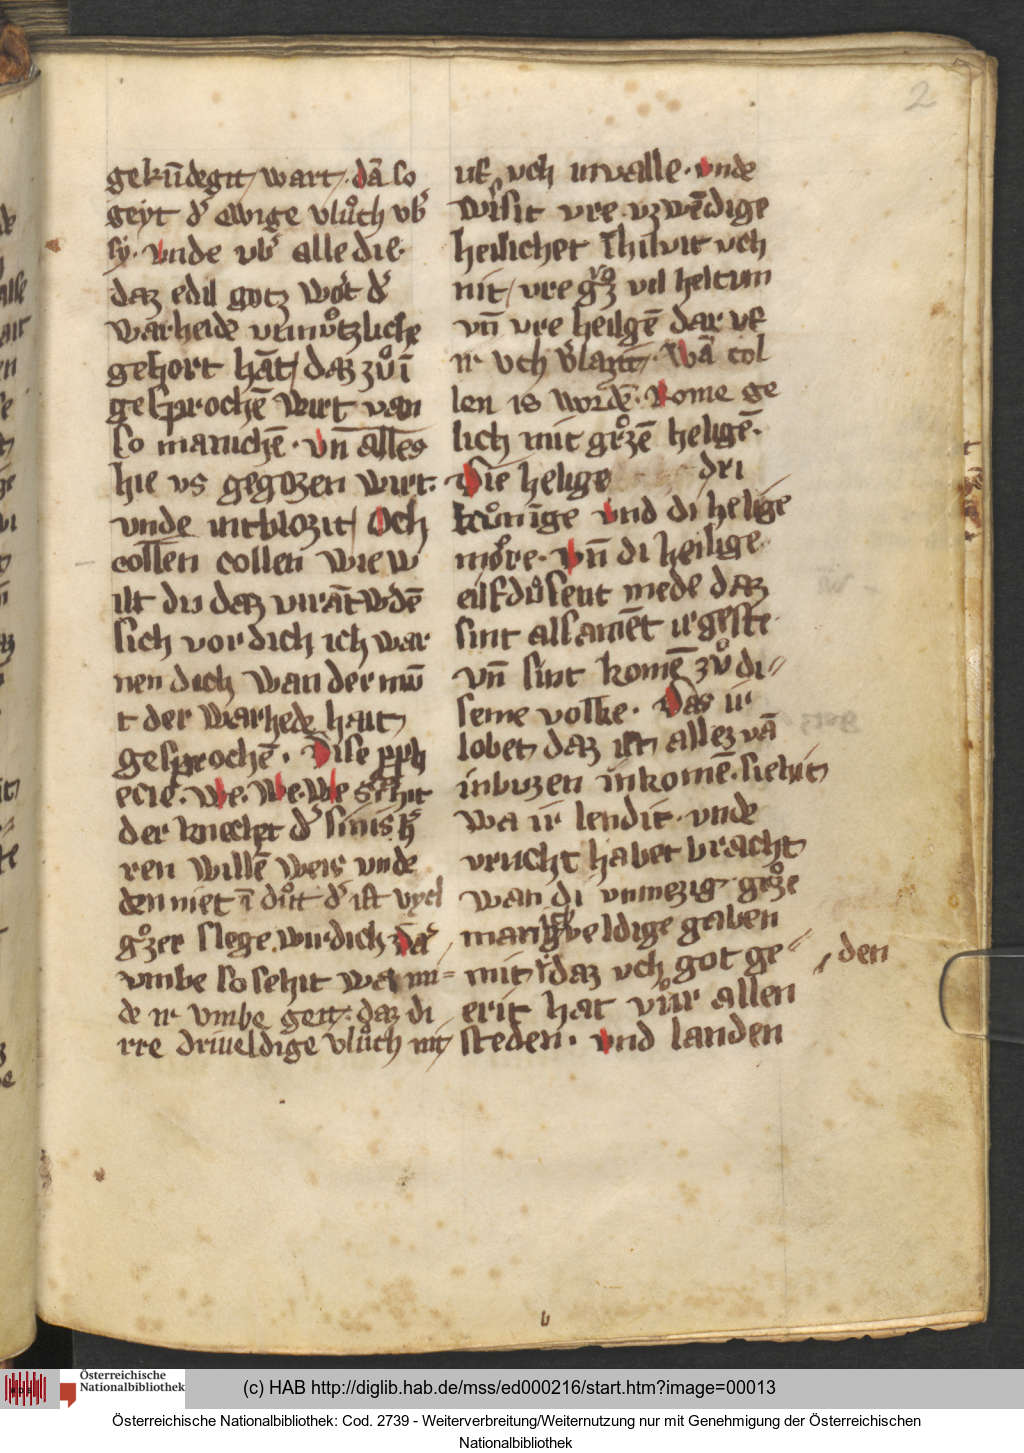 2
gekūdegit wart. dā so
geyt d' ewige vlůch vb'
sy. vnde vb' alle die.
daz edil gotz wort d'
warheide vnnůtzliche
gehort hāt/ daz zů ī
gesprochē wirt van
so manichē. vn̄ alles
hie vs gegozen wirt.
vnde intblozit/ Och
collen collen wie w
ilt du daz virātw'dē
sich vor dich ich war
nen dich wan der mū
t der warhede hait
gesprochē. Dise pph
ecie. We. We. We geschit
der knecht d' sinis h'
ren willē weis vnde
den niet ī důit d' ist vyel
gřozer slege wirdich Dar
vmbe so sehit wa mi=
de ir vmbe geit. daz di
rre driueldige vlůch nit
uf vch invalle. vnde
wisit vre vzwēdige
heilicheit
nit/ vre groz vil heltum
vn̄ vre heilgē dar vf
ir vch v'lazit. Wā col
len is wordē. Rome ge
lich mit grozē heligē.
Die helige dri
kůnige vnd di helige
more. vn̄ di heilige
eilfdůsent mede daz
sint alsamēt ir geste
vn̄ sint komē zů di=
seme volke. Das ir
lobet daz ist allez vā
inbuzen inkomē. siehit
wa ir lendit. vnde
vrucht habet bracht
wan di vnmezig groze
manigveldige gaben
mit daz vch got ge= den
erit hat vůr allen
steden. vnd landen
Österreichische
Nationalbibliothek
(c) HAB http://diglib.hab.de/mss/ed000216/start.htm?image=00013
Österreichische Nationalbibliothek: Cod. 2739 - Weiterverbreitung/Weiternutzung nur mit Genehmigung der Österreichischen
Nationalbibliothek